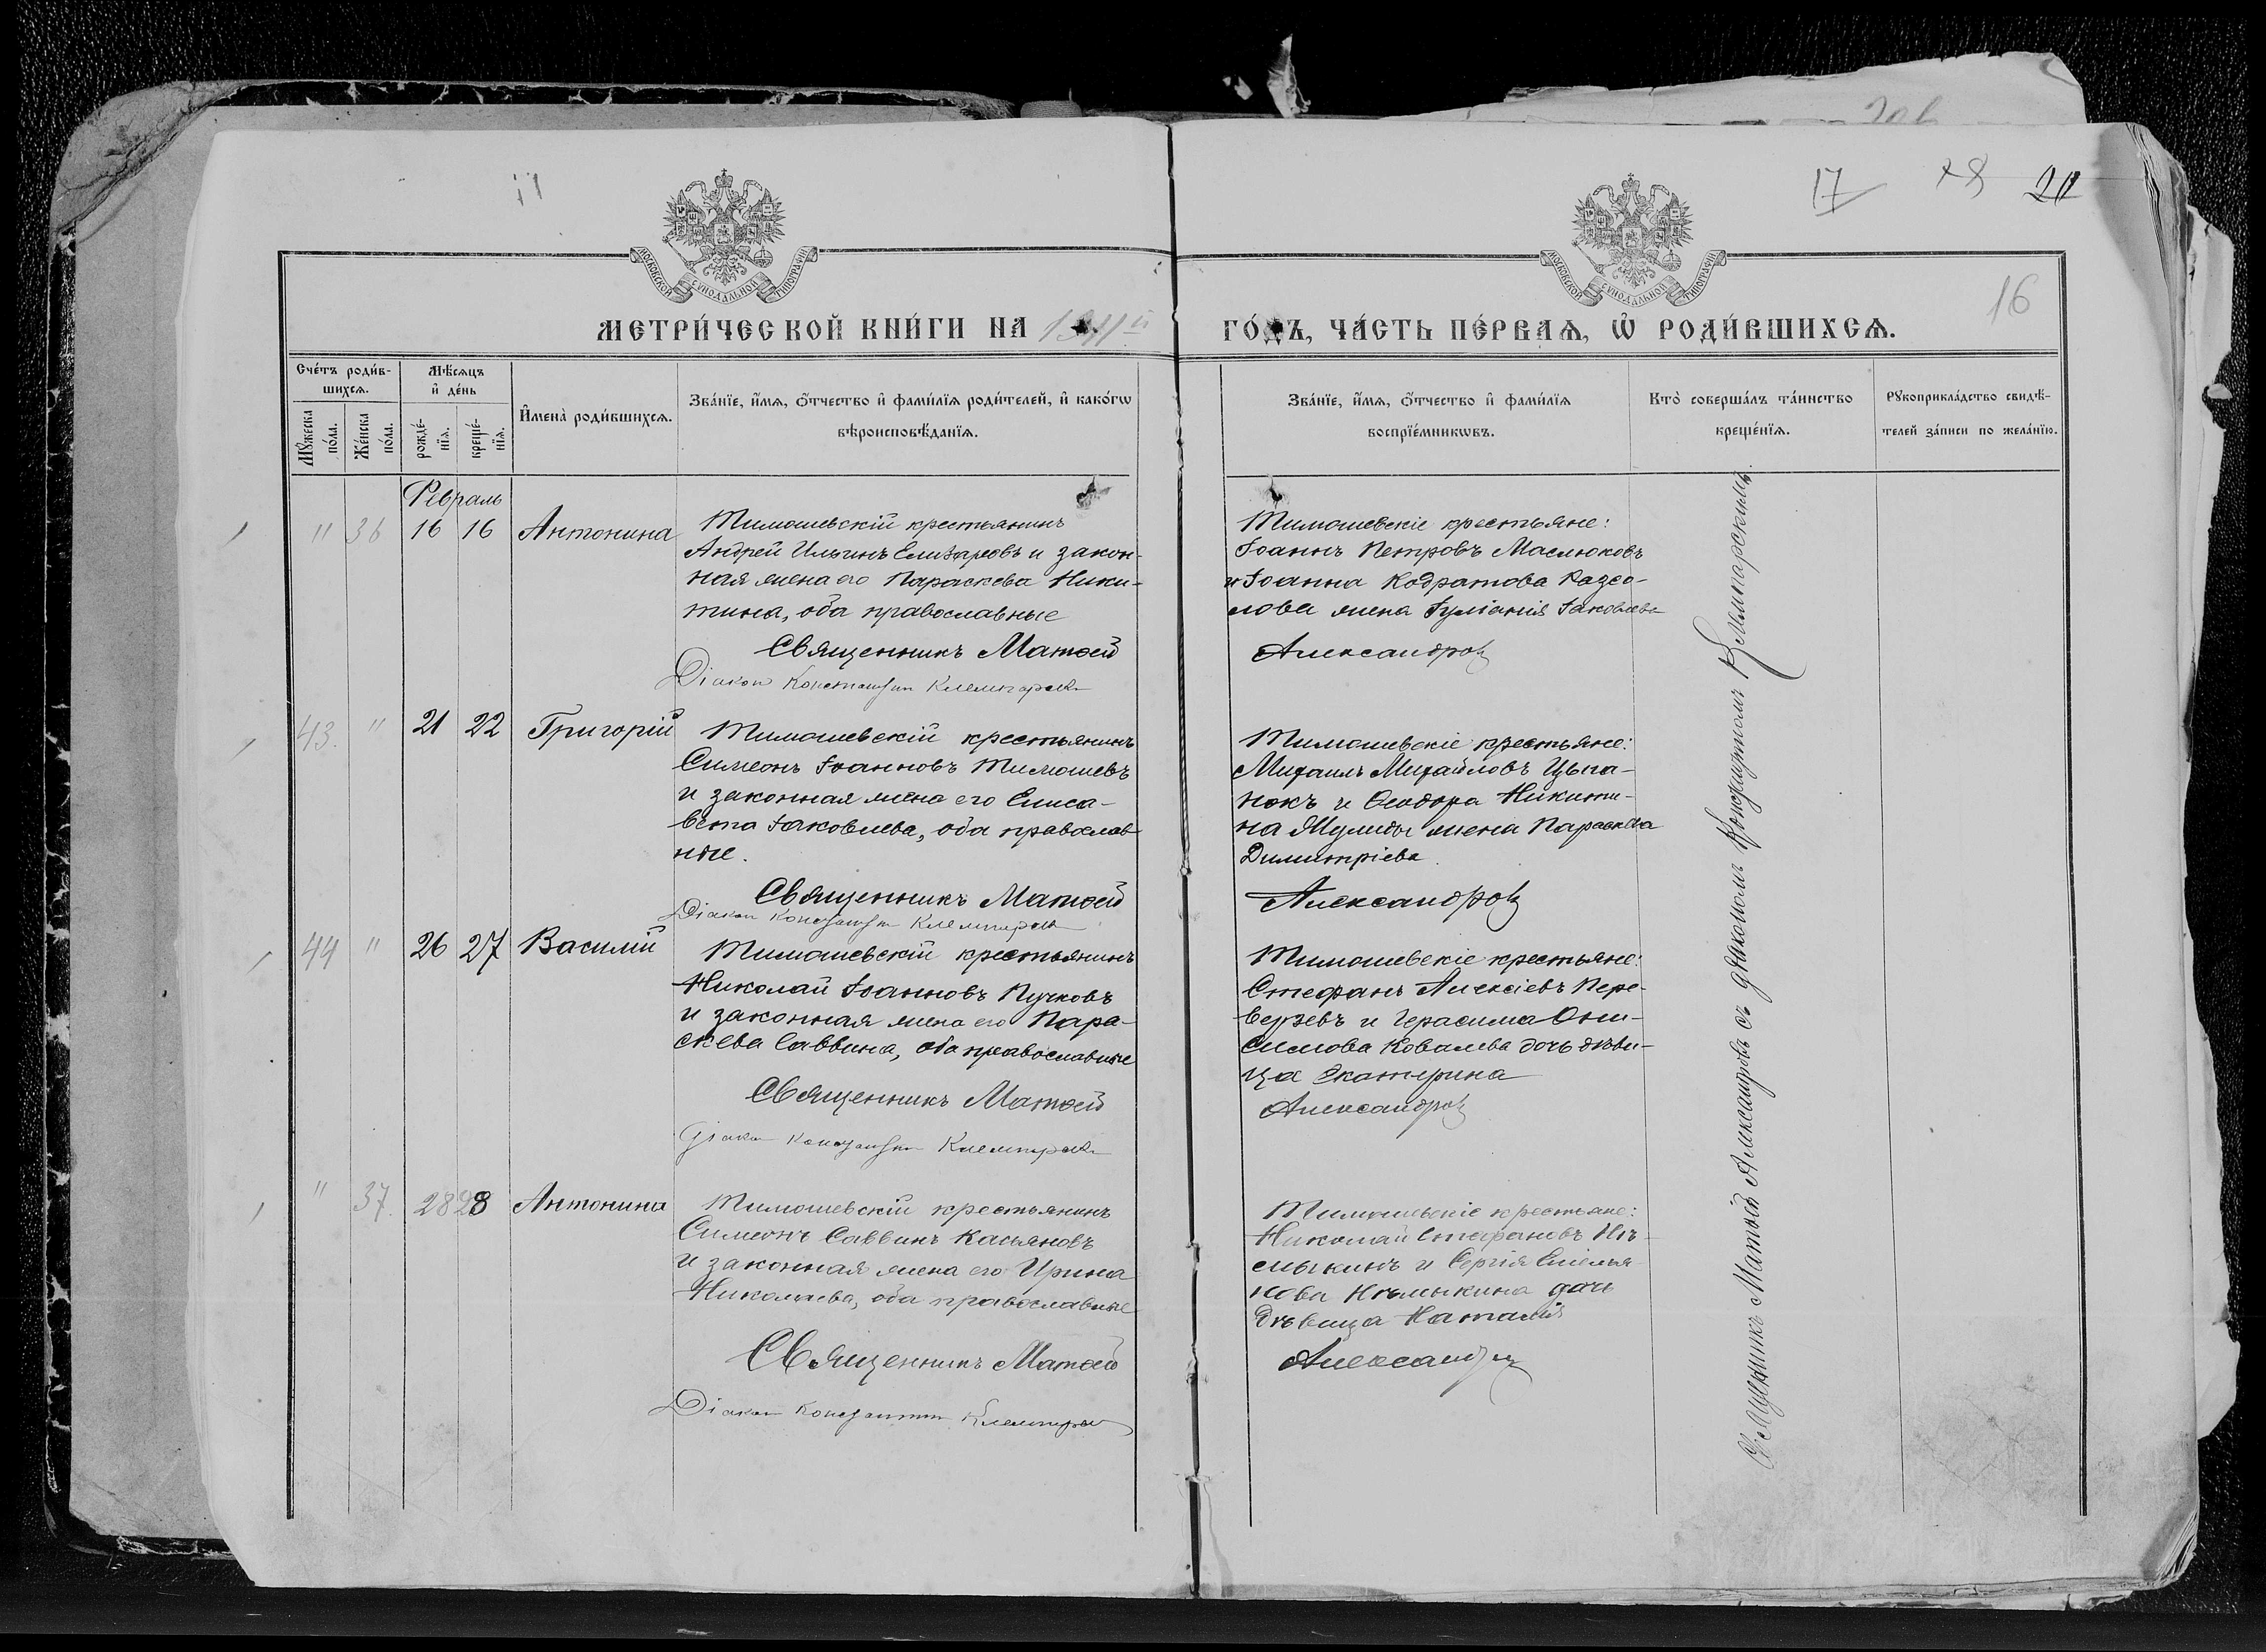 17 20
МОСКОВСКОЙ СѴНОДАЛЬНОЙ ТИПОГРАФІИ
МОСКОВСКОЙ СѴНОДАЛЬНОЙ ТИПОГРАФІИ
16
МЕТРИ́ЧЕСКОЙ КНИ́ГИ НА 1911й ГО́ДЪ, ЧА́СТЬ ПЕ́РВАѦ, Ѡ҆ РОДИ́ВШИХСѦ.
Сче́тъ роди́в-
шихсѧ.
Мꙋ́жеска по́ла.
Же́нска по́ла.
Мѣ́сѧцъ
и҆ де́нь
рожде́-
нїѧ.
креще́-
нїѧ.
И҆мена̀ роди́вшихсѧ.
Зва́нїе, и҆́мѧ, ѻ҆́тчество и҆ фами́лїѧ роди́телей, и҆ како́гѡ
вѣроисповѣ́данїѧ.
Зва́нїе, и҆́мѧ, ѻ҆́тчество и҆ фами́лїѧ
воспрїе́мникѡвъ.
Кто̀ соверша́лъ та́инство
креще́нїѧ.
Рꙋкоприкла́дство свидѣ́-
телей за́писи по жела́нїю.
Февраль
" 36 16 16 Антонина
Тимошевскій крестьянинъ
Андрей Ильинъ Елизаровъ и закон-
ная жена его Параскева Ники-
тина, оба православные
Священникъ Матѳей
Діакон Константин Клемпарск
Тимошевскіе крестьяне:
Іоаннъ Петровъ Маслюковъ
и Іоанна Кодратова
жена Іуліанія Іаковлева
Александров
43. " 21 22 Григорій
Тимошевскій крестьянинъ
Симеонъ Іоанновъ Тимошевъ
и законная жена его Елиса-
вета Іаковлева, оба православ-
ные.
Священникъ Матѳей
Діакон Константин Клемпарск
Тимошевскіе крестьяне:
Михаилъ Михайловъ Цыга-
нокъ и Ѳеодора Никити-
на жена Параскева
Димитріева.
Александров
44 " 26 27 Василій
Тимошевскій крестьянинъ
Николай Іоанновъ Пучковъ
и законная жена его Пара-
скева Саввина, оба православные
Священникъ Матѳей
Діакон Константин Клемпарск
Тимошевскіе крестьяне:
Стефанъ Алексіевъ Пере-
верзевъ и Герасима Они-
симова Ковалева дочь дѣви-
ца Екатерина
Александров
" 37. 28 28 Антонина
Тимошевскій крестьянинъ
Симеонъ Саввинъ Касьяновъ
и законная жена его Ирина
Николаева, оба православные
Священникъ Матѳей
Діакон Константин Клемпарск
Тимошевскіе крестьяне:
Николай Стефановъ Нѣ-
мыкинъ и Сергія Емелья-
нова Нѣмыкина дочь
дѣвица Наталія
Александров
Священникъ Матѳей Александровъ съ діакономъ Константиномъ Клемпарскимъ.